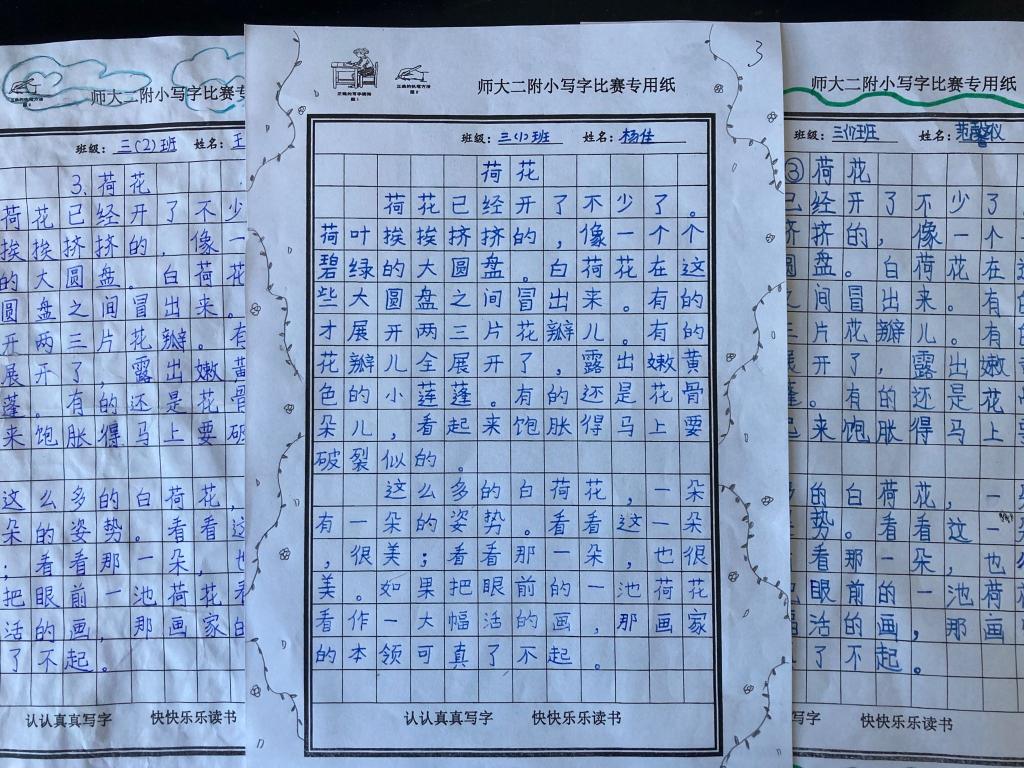 师大二附小写字比赛专
班级：三(2)班 姓名：王
3.荷花
荷花已经开了不少
挨挨挤挤的，像一
的大圆盘。白荷花
圆盘之间冒出来。
开两三片花瓣。有
展开了，露出嫩黄
蓬。有的还是花骨
来饱胀得马上要破
这么多的白荷花，
朵的姿势。看看这
；看看那一朵，也
把眼前一池荷花看
活的画，那画家的
了不起。
认认真真写字 快快乐乐读书
3
师大二附小写字比赛专用纸
班级：三(1)班 姓名：杨佳
荷花
荷花已经开了不少了。
荷叶挨挨挤挤的，像一个个
碧绿的大圆盘。白荷花在这
些大圆盘之间冒出来。有的
才展开两三片花瓣儿。有的
花瓣儿全展开了，露出嫩黄
色的小莲蓬。有的还是花骨
朵儿，看起来饱胀得马上要
破裂似的。
这么多的白荷花，一朵
有一朵的姿势。看看这一朵
，很美；看看那一朵，也很
美。如果把眼前的一池荷花
看作一大幅活的画，那画家
的本领可真了不起。
认认真真写字 快快乐乐读书
师大二附小写字比赛专用纸
班级：三(1)班 姓名：
③荷花
已经开了不少了
挤挤的，像一个
圆盘。白荷花在这
之间冒出来。有的
三片花瓣儿。有的
展开了，露出嫩黄
蓬。有的还是花
起来饱胀得马上要
多的白荷花，一
势。看看这一
看那一朵，也
把眼前的一池荷
幅活的画，那画
了不起。
写字 快快乐乐读书